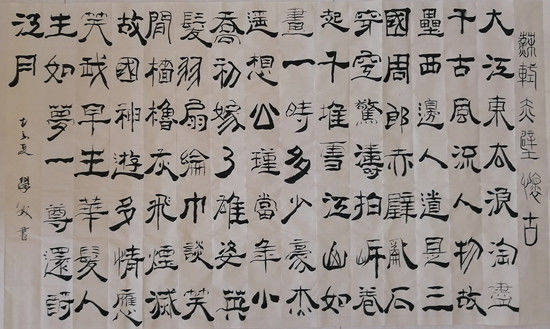 蘇軾赤壁懷古
大江東去浪淘盡
千古風流人物故
壘西邊人道是三
國周郎赤壁亂石
穿空驚濤拍岸卷
起千堆雪江山如
畫一時多少豪杰
遥想公瑾當年小
喬初嫁了雄姿英
髮羽扇綸巾談笑
間檣櫓灰飛煙滅
故國神游多情應
笑我早生華髮人
生如夢一尊還酹
江月
夏
書